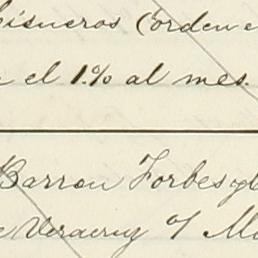 isneros (orden e
el 1% al mes.
Barron Forbes y
Veracruz o/ M